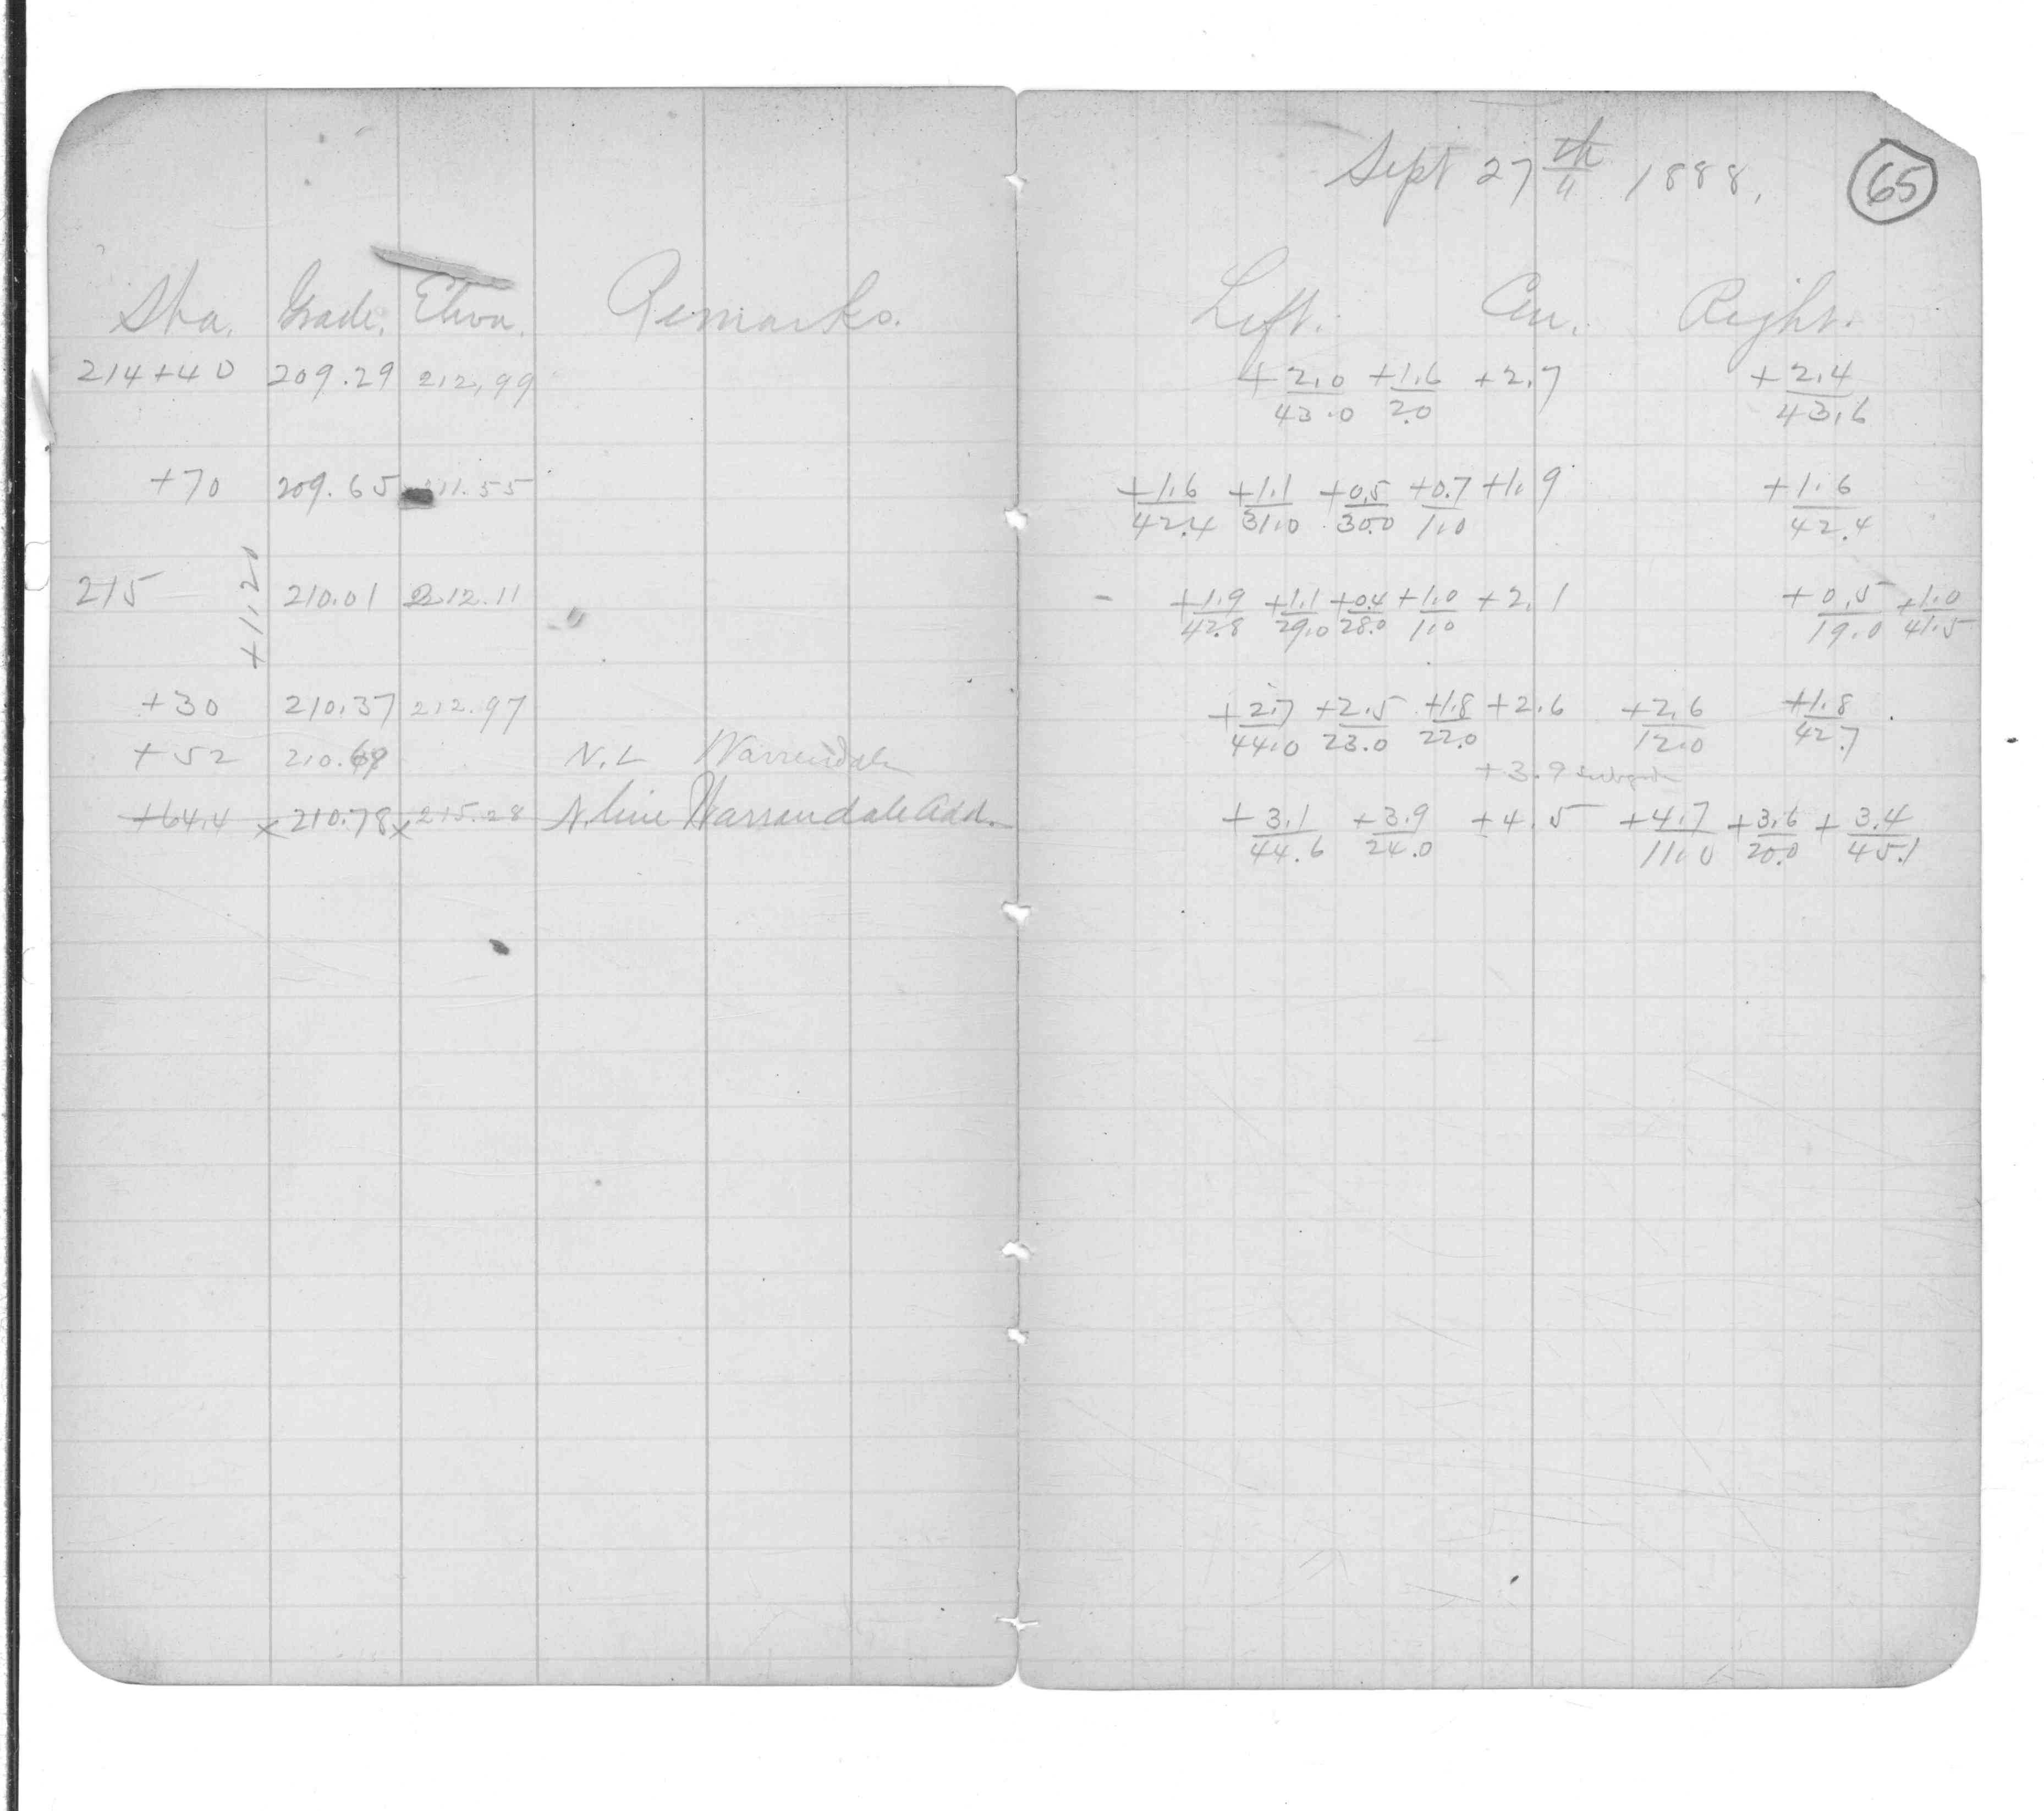 Sept 27th 1888. 65
Sta. Grade. Eleva. Remarks. Left. Cen. Right.
214+40 209.29 212.99 +2.0/43.0 +1.6/2.0 +2.7 +2.4/43.6
+70 209.65 211.55 +1.6/42.4 +1.1/31.0 +0.5/30.0 +0.7/1.0 +1.9 +1.6/42.4
+1.20
215 210.01 212.11 - +1.9/42.8 +1.1/29.0 +0.4/28.0 +1.0/1.0 +2.1 +0.5/19.0 +1.0/41.5
+30 210.37 212.97 +2.7/44.0 +2.5/23.0 +1.8/22.0 +2.6 +2.6/12.0 +1.8/42.7
+52 210.69 N.L Warrendale +3.9 subgrade
+64.4 x 210.78 x 215.28 N. line Warrandale Add. +3.1/44.6 +3.9/24.0 +4.5 +4.7/11.0 +3.6/20.0 +3.4/45.1